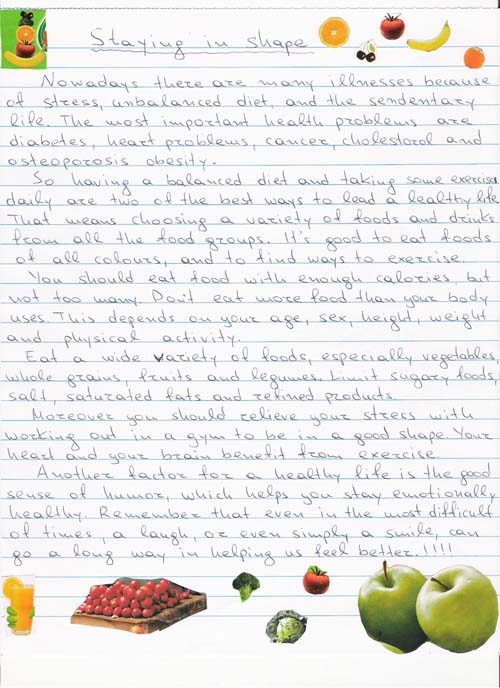 Staying in shape
Nowadays there are many illnesses because
of stress, unbalanced diet, and the sendentary
life. The most important health problems are
diabetes, heart problems, cancer, cholestorol and
osteoporosis obesity.
So having a balanced diet and taking some exercises
daily are two of the best ways to lead a lealthy life.
That means choosing a variety of foods and drinks
from all the food groups. It's good to eat foods
of all colours, and to find ways to exercise.
You should eat food with enough calories, but
not too many. Don't eat more food than your body
uses. This depends on your age, sex, height, weight
and physical activity.
Eat a wide variety of foods, especially vegetables,
whole grains, fruits and legumes. Limit sugary foods,
salt, saturated fats and refined products.
Moreover you should relieve your stress with
working out in a gym to be in a good shape. Your
heart and your brain benefit from exercise.
Another factor for a healthy life is the good
sense of humor, which helps you stay emotionally
healthy. Remember that even in the most difficult
of times, a laugh, or even simply a smile, can
go a long way in helping us feel better.!!!!